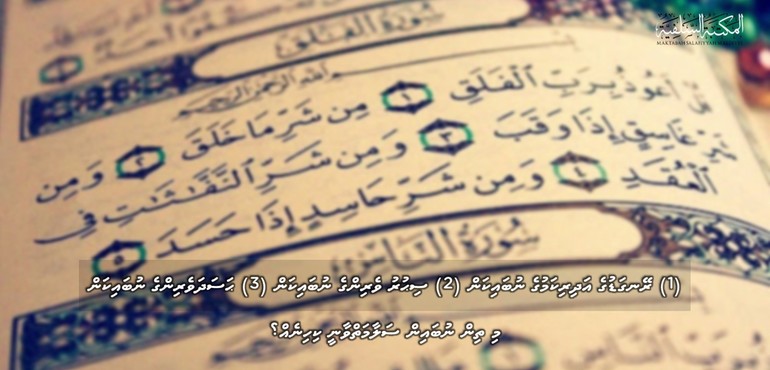 المكتبة السلفية
MAKTABAH SALAFIYYAH
سورة الفلق
بسم الله الرحمن الرحيم
قُلْ أَعُوذُ بِرَبِّ الْفَلَقِ ١ مِن شَرِّ مَا خَلَقَ ٢ وَمِن
شَرِّ غَاسِقٍ إِذَا وَقَبَ ٣ وَمِن شَرِّ النَّفَّٰثَٰتِ فِي
الْعُقَدِ ٤ وَمِن شَرِّ حَاسِدٍ إِذَا حَسَدَ ٥
سورة الناس
(1) ރޭނގަޑުގެ އަދިރިކަމުގެ ނުބައިކަން (2) ސިޙުރު ވެރިންގެ ނުބައިކަން (3) ޙަސަދަވެރިންގެ ނުބައިކަން
މި ތިން ނުބައިން ސަލާމަތްވާނީ ކިހިނެއް؟